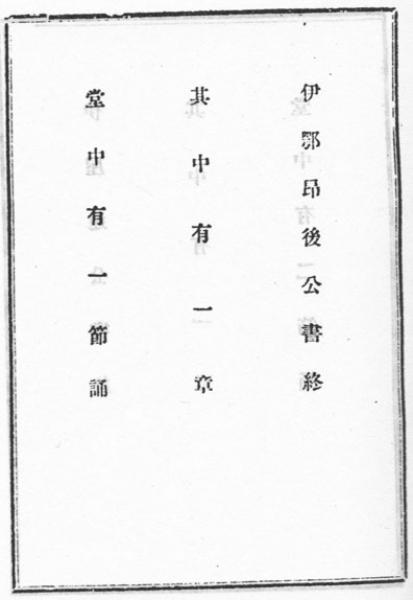 伊鄂昂後公書終
其中有一章
堂中有一節誦